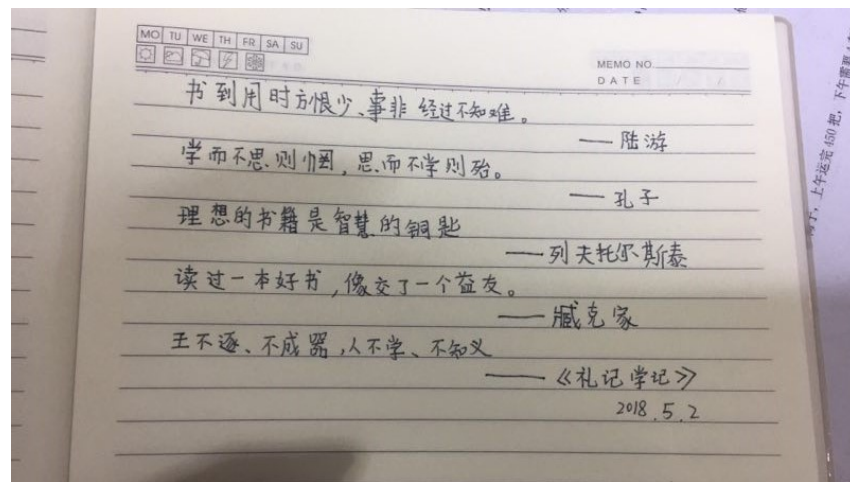 MO TU WE TH FR SA SU
MEMO NO.
DATE / /
书到用时方恨少、事非经过不知难。
——陆游
学而不思则惘，思而不学则殆。
——孔子
理想的书籍是智慧的钥匙
——列夫托尔斯泰
读过一本好书，像交了一个益友。
——臧克家
王不逐、不成器，人不学、不知义
——《礼记学记》
2018.5.2
上午运完450把，下午需要